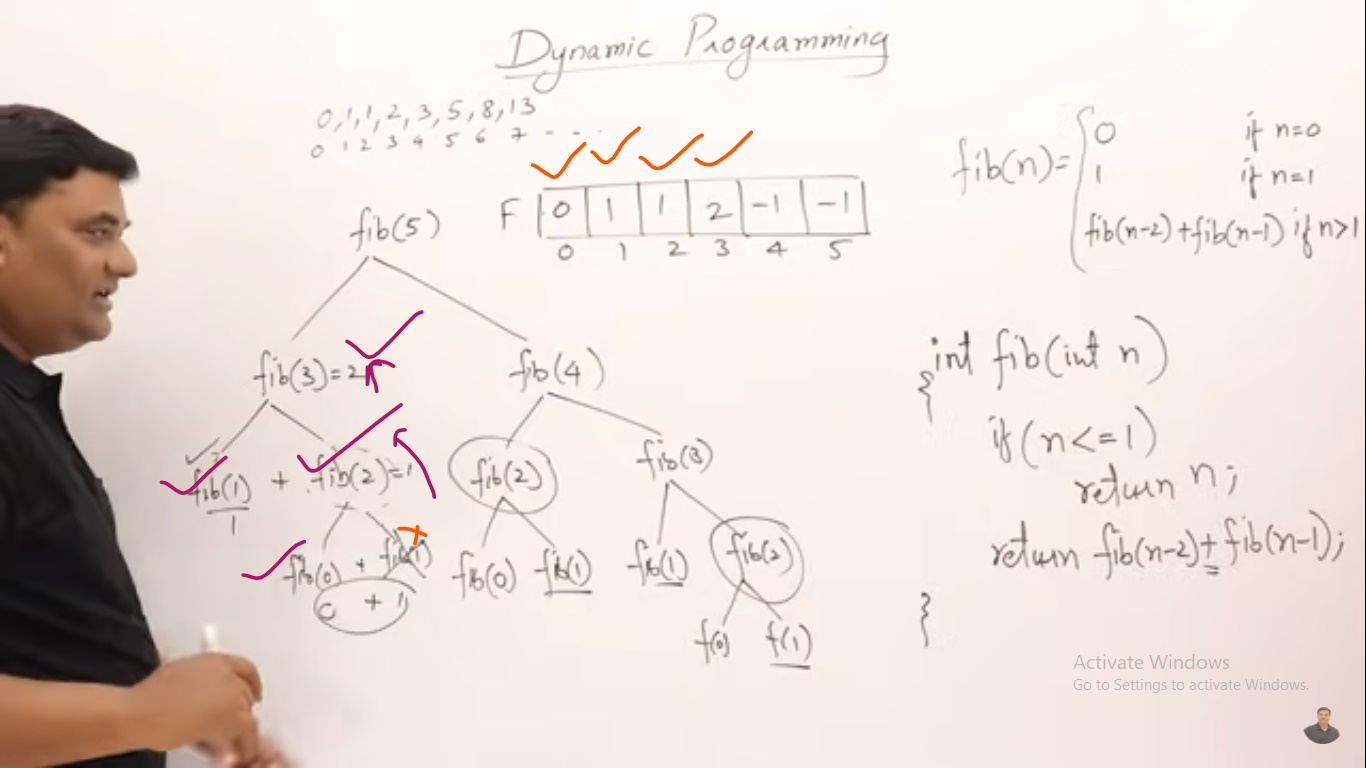 Dynamic Programming
0,1,1,2,3,5,8,13
0 1 2 3 4 5 6 7 - - -
F 0 1 1 2 -1 -1
0 1 2 3 4 5
fib(n)= 0 if n=0
1 if n=1
fib(n-2)+fib(n-1) if n>1
fib(5)
fib(3)=2 fib(4)
fib(1) + fib(2)=1 fib(2) fib(3)
1
fib(0) + fib(1) fib(0) fib(1) fib(1) fib(2)
0 + 1
f(0) f(1)
int fib(int n)
{
if(n<=1)
return n;
return fib(n-2)+fib(n-1);
}
Activate Windows
Go to Settings to activate Windows.